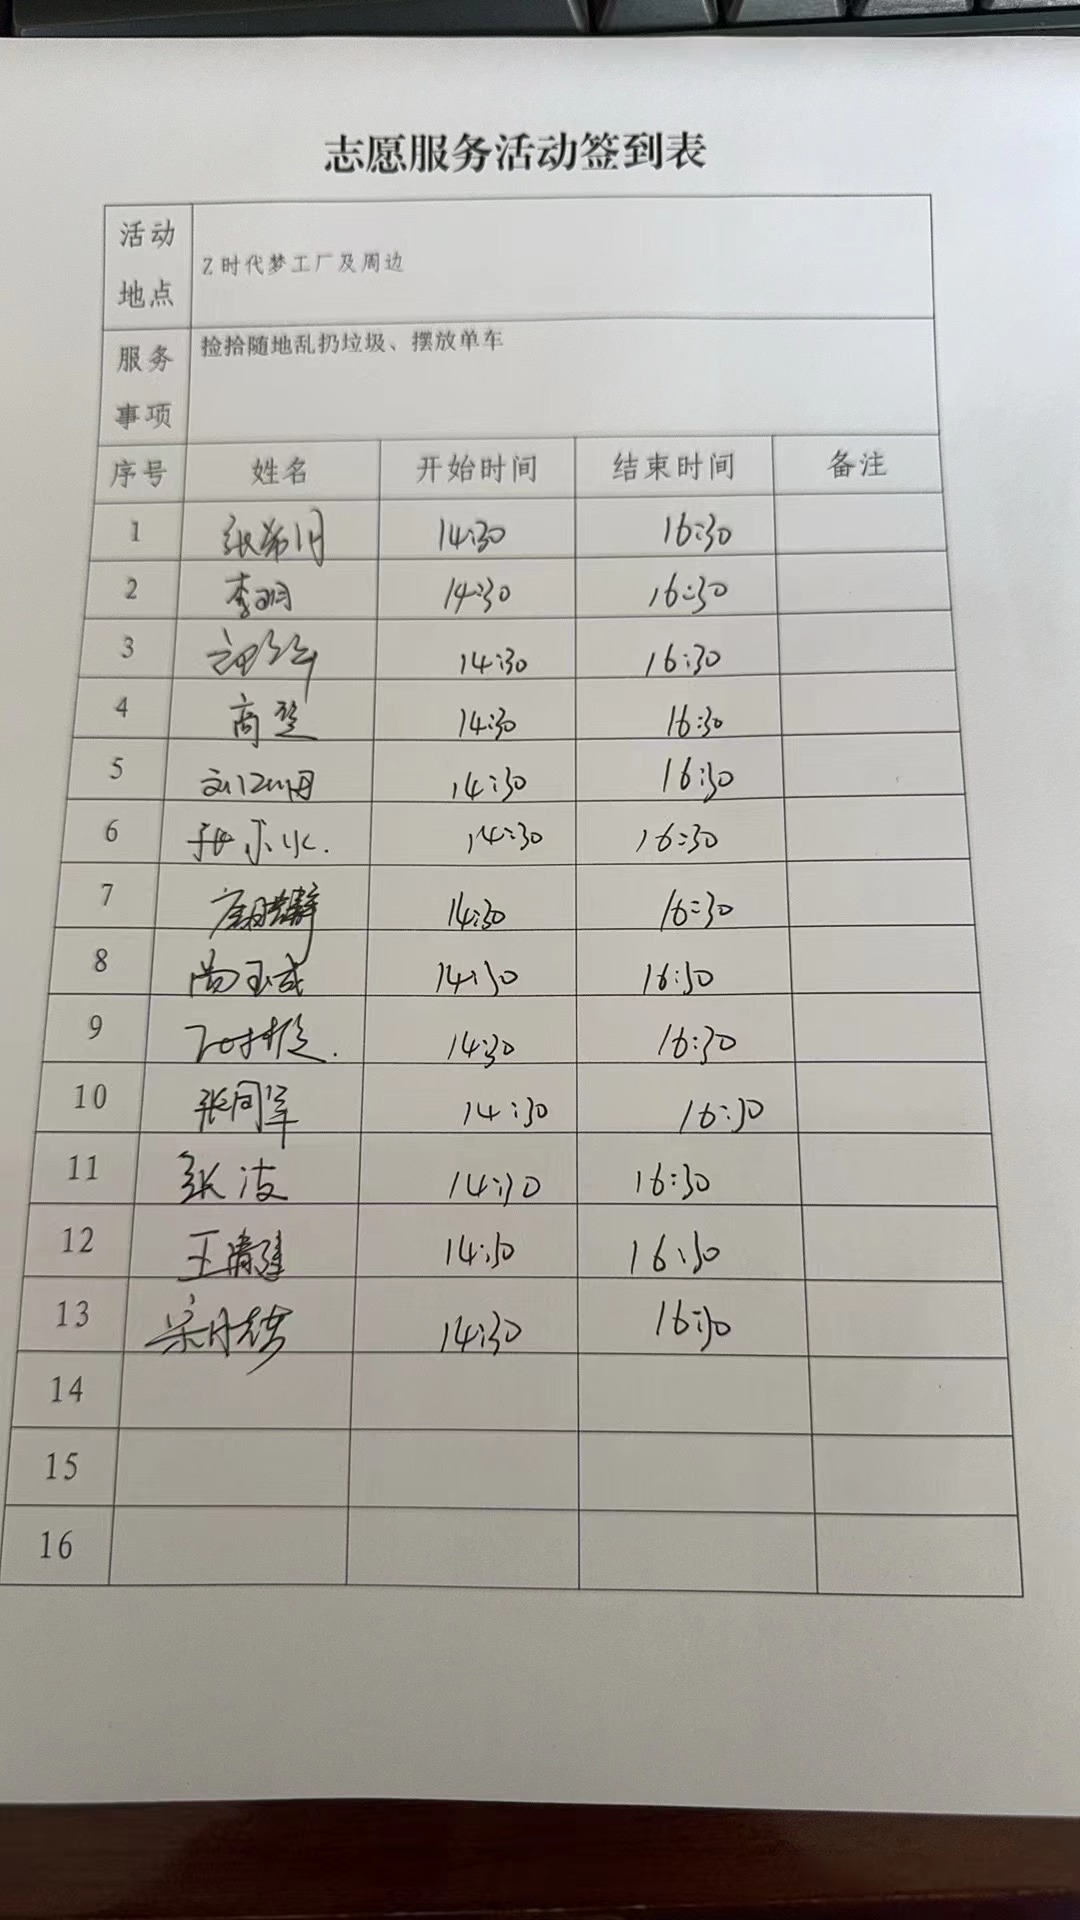 志愿服务活动签到表
活动地点 Z时代梦工厂及周边
服务事项 捡拾随地乱扔垃圾、摆放单车
序号 姓名 开始时间 结束时间 备注
1 张希月 14:30 16:30
2 李明 14:30 16:30
3 14:30 16:30
4 商 14:30 16:30
5 14:30 16:30
6 14:30 16:30
7 14:30 16:30
8 尚玉成 14:30 16:30
9 14:30 16:30
10 张同军 14:30 16:30
11 张洁 14:30 16:30
12 王清建 14:30 16:30
13 宋 14:30 16:30
14
15
16